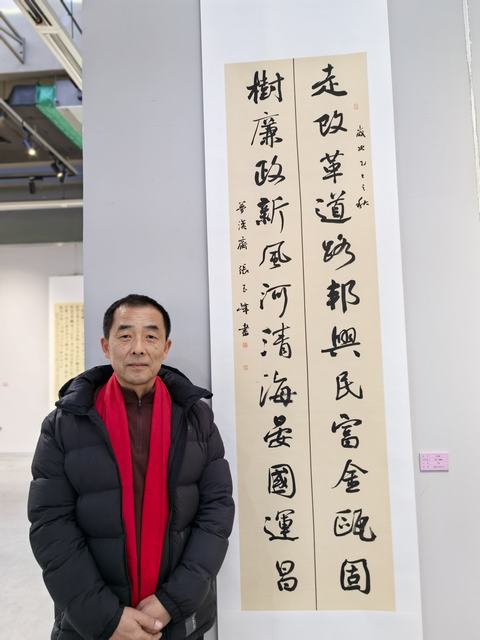 歲次乙巳之秋
走改革道路邦興民富金甌固
樹廉政新風河清海晏國運昌
齋 張 書